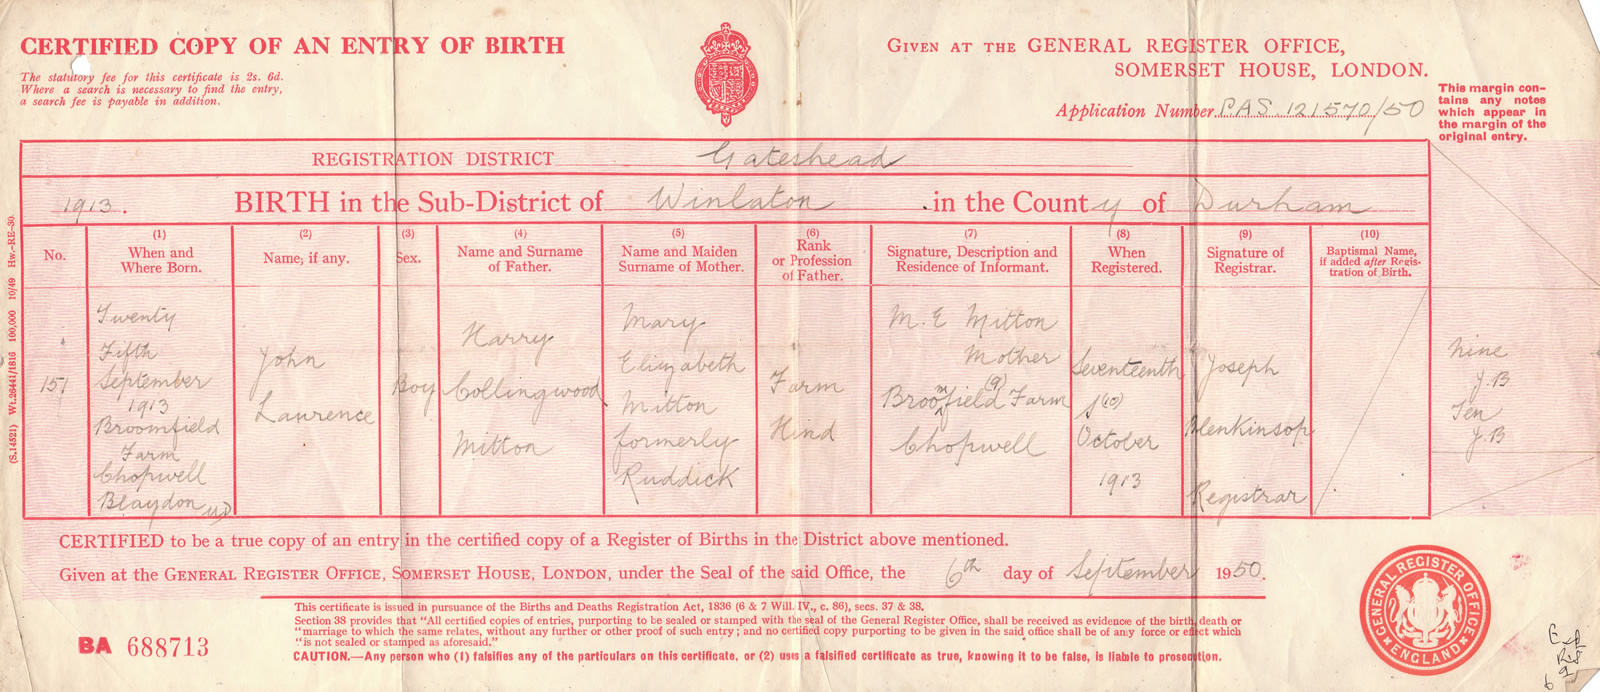 CERTIFIED COPY OF AN ENTRY OF BIRTH
The statutory fee for this certificate is 2s. 6d.
Where a search is necessary to find the entry,
a search fee is payable in addition.
GIVEN AT THE GENERAL REGISTER OFFICE,
SOMERSET HOUSE, LONDON.
Application Number PAS 121570/50
This margin con-
tains any notes
which appear in
the margin of the
original entry.
REGISTRATION DISTRICT Gateshead
1913. BIRTH in the Sub-District of Winlaton in the County of Durham
No.
(1)
When and
Where Born.
(2)
Name, if any.
(3)
Sex.
(4)
Name and Surname
of Father.
(5)
Name and Maiden
Surname of Mother.
(6)
Rank
or Profession
of Father.
(7)
Signature, Description and
Residence of Informant.
(8)
When
Registered.
(9)
Signature of
Registrar.
(10)
Baptismal Name,
if added after Regis-
tration of Birth.
151
Twenty
Fifth
September
1913
Broomfield
Farm
Chopwell
Blaydon UD
John
Lawrence
Boy
Harry
Collingwood
Mitton
Mary
Elizabeth
Mitton
formerly
Ruddick
Farm
Hind
M. E Mitton
Mother
Broomfield (9) Farm
Chopwell
Seventeenth
(10)
October
1913
Joseph
Blenkinsop
Registrar
Nine
J.B
Ten
J.B
CERTIFIED to be a true copy of an entry in the certified copy of a Register of Births in the District above mentioned.
Given at the GENERAL REGISTER OFFICE, SOMERSET HOUSE, LONDON, under the Seal of the said Office, the 6th day of September 1950.
This certificate is issued in pursuance of the Births and Deaths Registration Act, 1836 (6 & 7 Will. IV., c. 86), secs. 37 & 38.
Section 38 provides that "All certified copies of entries, purporting to be sealed or stamped with the seal of the General Register Office, shall be received as evidence of the birth, death or
"marriage to which the same relates, without any further or other proof of such entry; and no certified copy purporting to be given in the said office shall be of any force or effect which
"is not sealed or stamped as aforesaid."
CAUTION.—Any person who (1) falsifies any of the particulars on this certificate, or (2) uses a falsified certificate as true, knowing it to be false, is liable to prosecution.
BA 688713
GENERAL REGISTER OFFICE
ENGLAND
(S.14521) Wt.26441/1816 100,000 10/49 Hw.-RE-30.